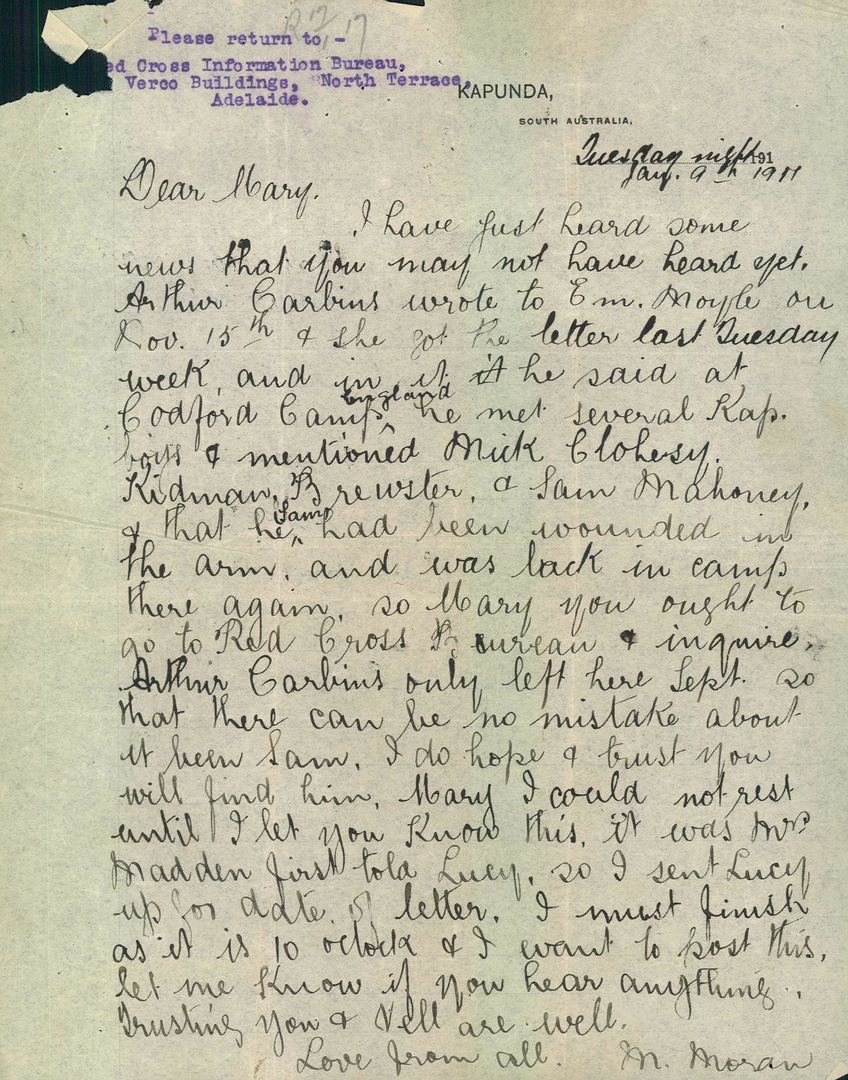 Please return to -
ed Cross Information Bureau,
Verco Buildings, North Terrace,
Adelaide.
KAPUNDA,
SOUTH AUSTRALIA,
Tuesday night 191
Jan. 9th 1917
Dear Mary.
I have just heard some
news that you may not have heard yet.
Arthur Carbins wrote to Em. Moyle on
Nov. 15th & she got the letter last Tuesday
week, and in it he said at
Codford Camp England he met several Kap.
boys & mentioned Mick Clohesy.
Kidman, Brewster, & Sam Mahoney,
& that he Sam had been wounded in
the arm, and was back in camp
there again, so Mary you ought to
go to Red Cross Bureau & inquire.
Arthur Carbins only left here Sept. so
that there can be no mistake about
it been Sam, I do hope & trust you
will find him, Mary I could not rest
until I let you know this, it was Mrs
Madden first told Lucy, so I sent Lucy
up for date of letter, I must finish
as it is 10 oclock & I want to post this,
let me know if you hear anything,
Trusting you & Nell are well.
Love from all. M. Moran